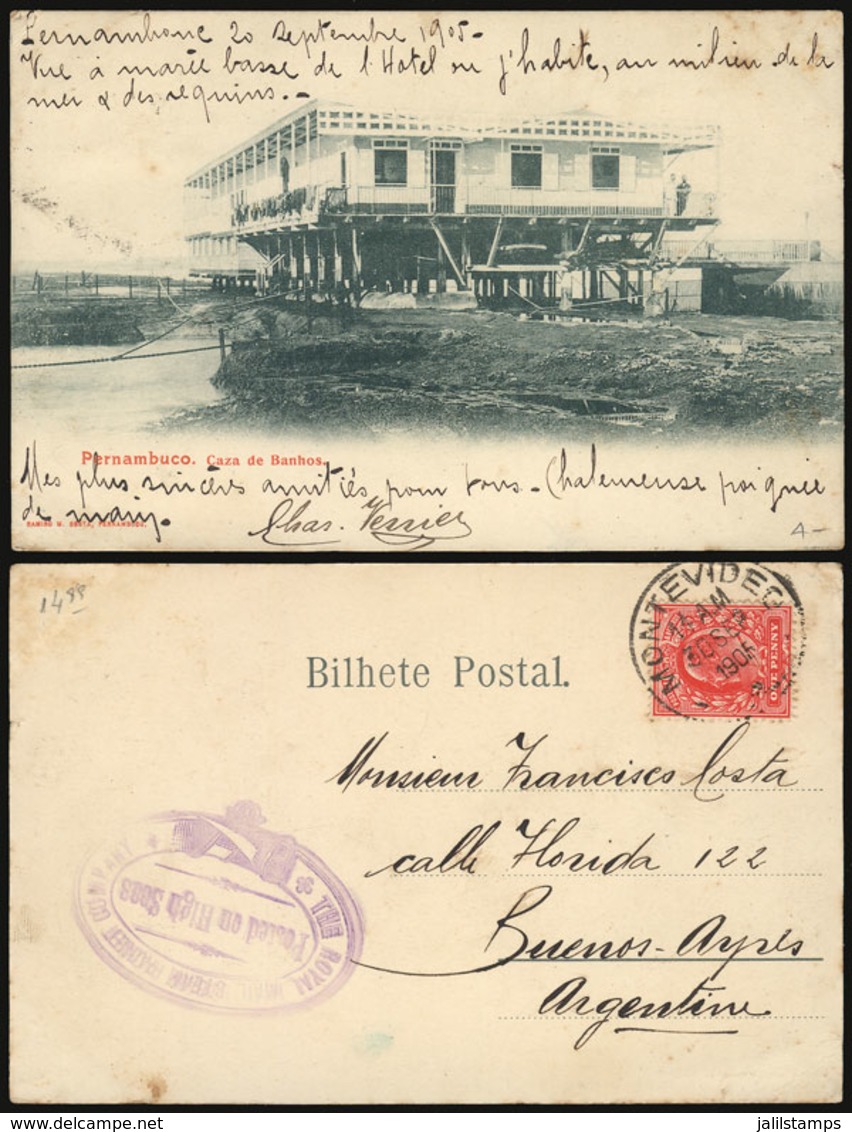 Pernambouc 20 septembre 1905-
Vue à marée basse de l'Hotel ou j'habite, au milieu de la
mer & des requins.-
Pernambuco. Caza de Banhos.
Mes plus sincères amitiés pour Vous - Chaleureuse poignée
de main.
Chas. Verrier
RAMIRO M. COSTA, PERNAMBUCO.
4-
1488
Bilhete Postal.
MONTEVIDEO
11 AM
30 SE
1905
ONE PENNY
Monsieur Francisco Costa
calle Florida 122
Buenos-Ayres
Argentine
THE ROYAL MAIL STEAM PACKET COMPANY
Posted on High Seas
jalilstamps